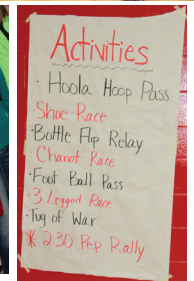 Activities
· Hoola Hoop Pass
· Shoe Race
· Bottle Flip Relay
· Chariot Race
· Foot Ball Pass
· 3 Legged Race
· Tug of War
* 2:30 Pep Rally